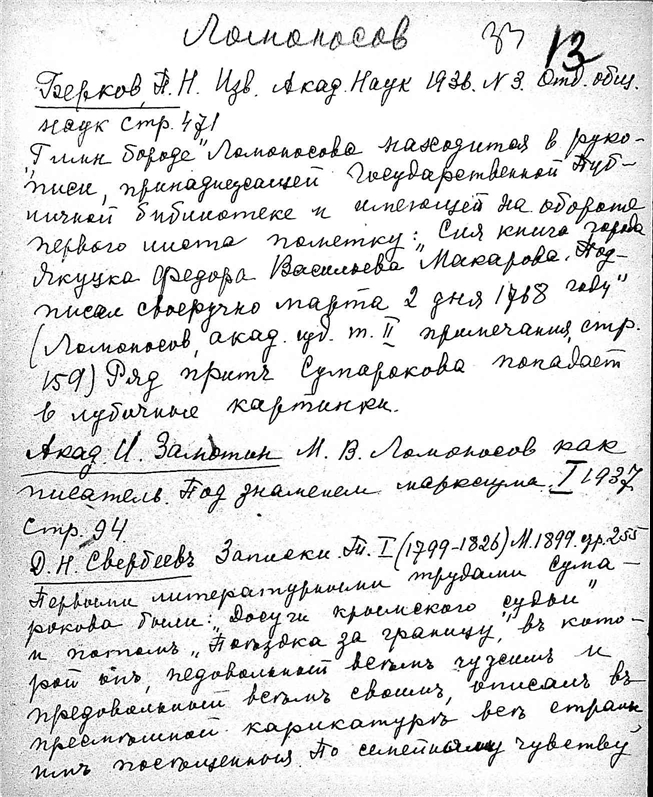 Ломоносов 33 13
Берков, П. Н. Изв. Акад. Наук 1936. N 3. Отд. общ.
наук стр. 471
„Гимн бороде" Ломоносова находится в руко-
писи, принадлежащей Государственной Пуб-
личной библиотеке и имеющей на обороте
первого листа пометку: „Сия книга города
Якуцка Федора Васильева Макарова. Под-
писал своеручно марта 2 дня 1768 году"
(Ломоносов, акад. изд. т. II примечания, стр.
159) Ряд притч Сумарокова попадает
в лубочные картинки.
Акад. И. Замотин М. В. Ломоносов как
писатель. Под знаменем марксизма. I 1937
Стр. 94
Д. Н. Свербеевъ Записки. Т. I (1799-1826) М. 1899. стр. 255
Первыми литературными трудами Сума-
рокова были: „Досуги крымского судьи"
и потомъ „Поѣздка за границу", въ кото-
рой онъ, недовольный всѣмъ чужимъ и
предовольный всѣмъ своимъ, описалъ въ
пресмѣшной карикатурѣ всѣ страны,
имъ посѣщенныя. По семейному чувству,